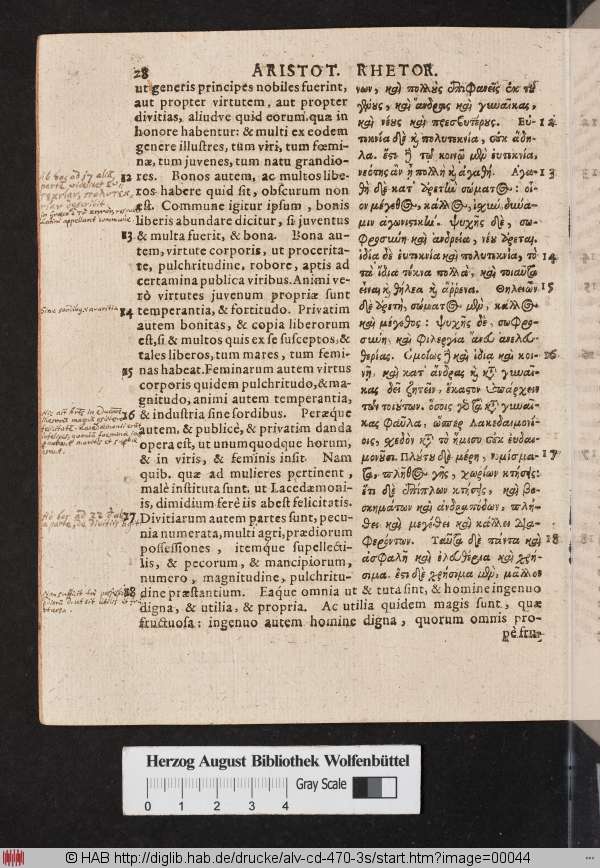 28 ARISTOT. RHETOR.
ut generis principes nobiles fuerint,
aut propter virtutem, aut propter
divitias, aliudve quid eorum, quæ in
honore habentur: & multi ex eodem
genere illustres, tùm viri, tum fœmi-
næ, tum juvenes, tum natu grandio-
12 res. Bonos autem, ac multos libe-
ros habere quid sit, obscurum non
est. Commune igitur ipsum, bonis
liberis abundare dicitur, si juventus
13 & multa fuerit, & bona. Bona au-
tem, virtute corporis, ut procerita-
te, pulchritudine, robore, aptis ad
certamina publica viribus. Animi ve-
rò virtutes juvenum propriæ sunt
14 temperantia, & fortitudo. Privatim
autem bonitas, & copia liberorum
est, si & multos quis ex se susceptos, &
tales liberos, tum mares, tum femi-
15 nas habeat. Feminarum autem virtus
corporis quidem pulchritudo, & ma-
gnitudo, animi autem temperantia,
16 & industria sine sordibus. Peræque
autem, & publicè, & privatim danda
opera est, ut unumquodque horum,
& in viris, & feminis insit. Nam
quib. quæ ad mulieres pertinent,
malè instituta sunt, ut Lacedæmoni-
is, dimidium ferè iis abest felicitatis.
17 Divitiarum autem partes sunt, pecu-
nia numerata, multi agri, prædiorum
possessiones, itemque supellecti-
lis, & pecorum, & mancipiorum,
numero, magnitudine, pulchritu-
18 dine præstantium. Eaque omnia ut & tuta sint, & homine ingenuo
digna, & utilia, & propria. Ac utilia quidem magis sunt, quæ
fructuosa: ingenuo autem homine digna, quorum omnis pro-
pè fru-
νων, καὶ πολλοὺς ἐπιφανεῖς ἐκ τοῦ
γένους, καὶ ἄνδρας καὶ γυναῖκας,
καὶ νέους καὶ πρεσβυτέρους. Εὐ- 12
τεκνία δὲ καὶ πολυτεκνία, οὐκ ἄδη-
λα. ἔστι δὲ τῷ κοινῷ μὲν εὐτεκνία,
νεότης ἂν ᾖ πολλὴ καὶ ἀγαθή. Ἀγα- 13
θὴ δὲ κατ' ἀρετὴν σώματος: οἷ-
ον μέγεθος, κάλλος, ἰσχὺν, δύνα-
μιν ἀγωνιστικήν. ψυχῆς δὲ, σω-
φροσύνη καὶ ἀνδρεία, νέου ἀρεταί.
ἰδίᾳ δὲ εὐτεκνία καὶ πολυτεκνία, τὸ 14
τὰ ἴδια τέκνα πολλὰ, καὶ τοιαῦτα
εἶναι, καὶ θήλεα καὶ ἄρρενα. Θηλειῶν 15
δὲ ἀρετὴ, σώματος μὲν, κάλλος
καὶ μέγεθος: ψυχῆς δὲ, σωφρο-
σύνη, καὶ φιλεργία ἄνευ ἀνελευ-
θερίας. Ὁμοίως δὲ καὶ ἰδίᾳ καὶ κοι- 16
νῇ, καὶ κατ' ἄνδρας καὶ κατὰ γυναῖ-
κας δεῖ ζητεῖν, ἕκαστον ὑπάρχειν
τῶν τοιούτων. ὅσοις γὰρ τὰ κατὰ γυναῖ-
κας φαῦλα, ὥσπερ Λακεδαιμονί-
οις, σχεδὸν κατὰ τὸ ἥμισυ οὐκ εὐδαι-
μονοῦσι. Πλούτου δὲ μέρη, νομίσμα- 17
τα, πλῆθος γῆς, χωρίων κτῆσις:
ἔτι δὲ ἐπίπλων κτῆσις, καὶ βο-
σκημάτων καὶ ἀνδραπόδων, πλή-
θει καὶ μεγέθει καὶ κάλλει δια-
φερόντων. Ταῦτα δὲ πάντα καὶ 18
ἀσφαλῆ καὶ ἐλευθέρια καὶ χρή-
σιμα. ἔστι δὲ χρήσιμα μὲν, μᾶλλον
Herzog August Bibliothek Wolfenbüttel
Gray Scale
0 1 2 3 4
© HAB http://diglib.hab.de/drucke/alv-cd-470-3s/start.htm?image=00044